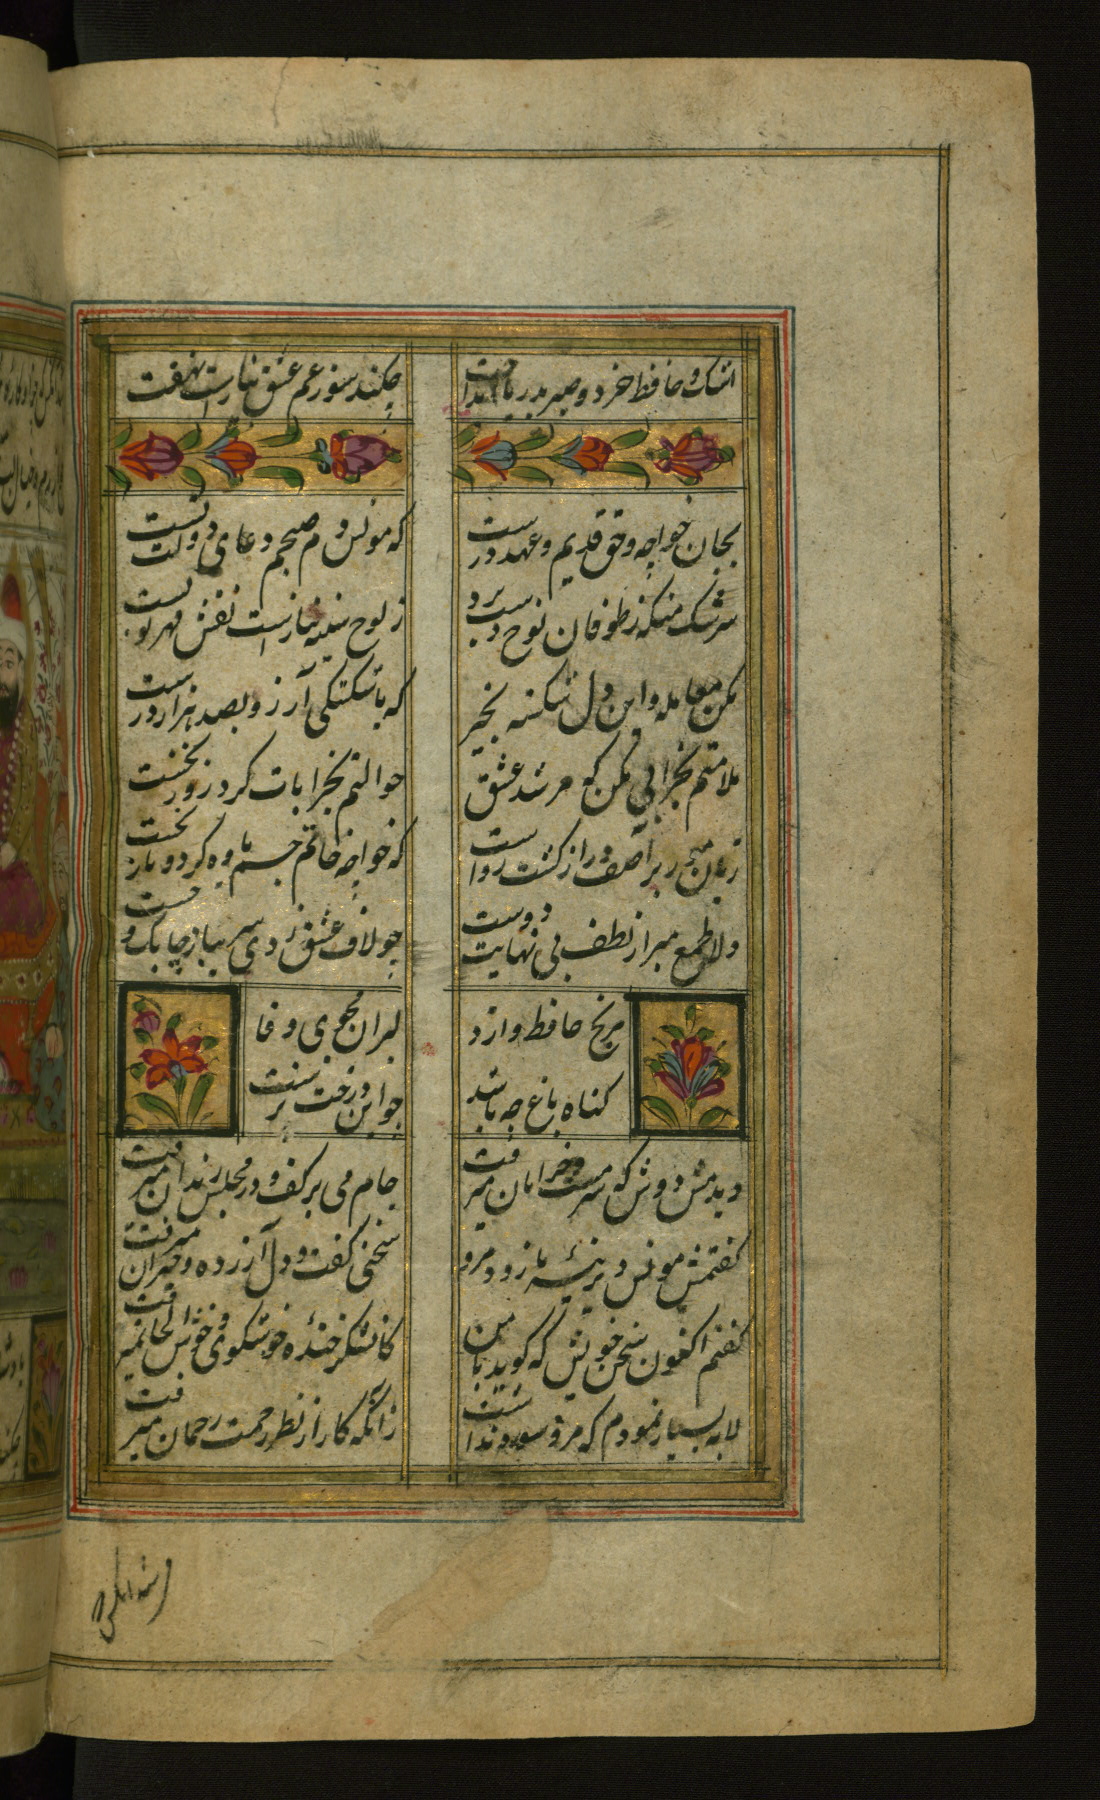 اشک حافظ خرد و صبر بدریا انداخت
چکند سوز غم عشق نیارست نهفت
بجان خواجه و حق قدیم و عهد درست
که مونس دم صبحم دعای دولت تست
سرشک من که ز طوفان نوح دست برد
ز لوح سینه نیارست نقش مهر تو شست
بکن معامله و این دل شکسته بخر
که با شکستکی آرزو بصد هزار درست
ملامتم بخرابی مکن که مرشد عشق
حوالتم بخرابات کرد روز نخست
زبان مور بر آصف دراز کشت رواست
که خواجه خاتم جم یاوه کرد و باز نجست
دلا طمع مبر از لطف بی نهایت دوست
چو لاف عشق زدی سر بباز چابک و چست
مرنج حافظ و از د
لبران مجوی وفا
کناه باغ چه باشد
چو این درخت نرست
دیدمش دوش که سرمست و خرامان میرفت
جام می بر کف و در مجلس رندان میرفت
کفتمش مونس دیرینه ما زود مرو
سخنی کفت و دل آزرده و حیران میرفت
کفتم اکنون سخن خویش که کوید با من
کان شکر خنده خوشکوی و خوش الحان میرفت
لابه بسیار نمودم که مرو سود نداشت
زانکه کار از نظر رحمت رحمان میرفت